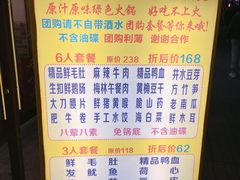 原汁原味绿色火锅 好吃不上火
团购请不自带酒水 团购套餐等你来哦!
不含油碟 团购利薄 谢谢合作
6人套餐 原价238 折后价168
精品鲜毛肚 麻辣牛肉 精品鸭血 井水豆芽
生扣鲜鹅肠 梅林午餐肉 黄梅豆干 青笋
大刀腰片 鲜猪黄喉 脆山药 老南瓜
肥牛卷 手工水饺 海白菜 鲜水耳
八荤八素 免锅底 不含油碟
3人套餐 原价118 折后价62
鲜毛肚 精品鸭血
发鱿鱼 荷心